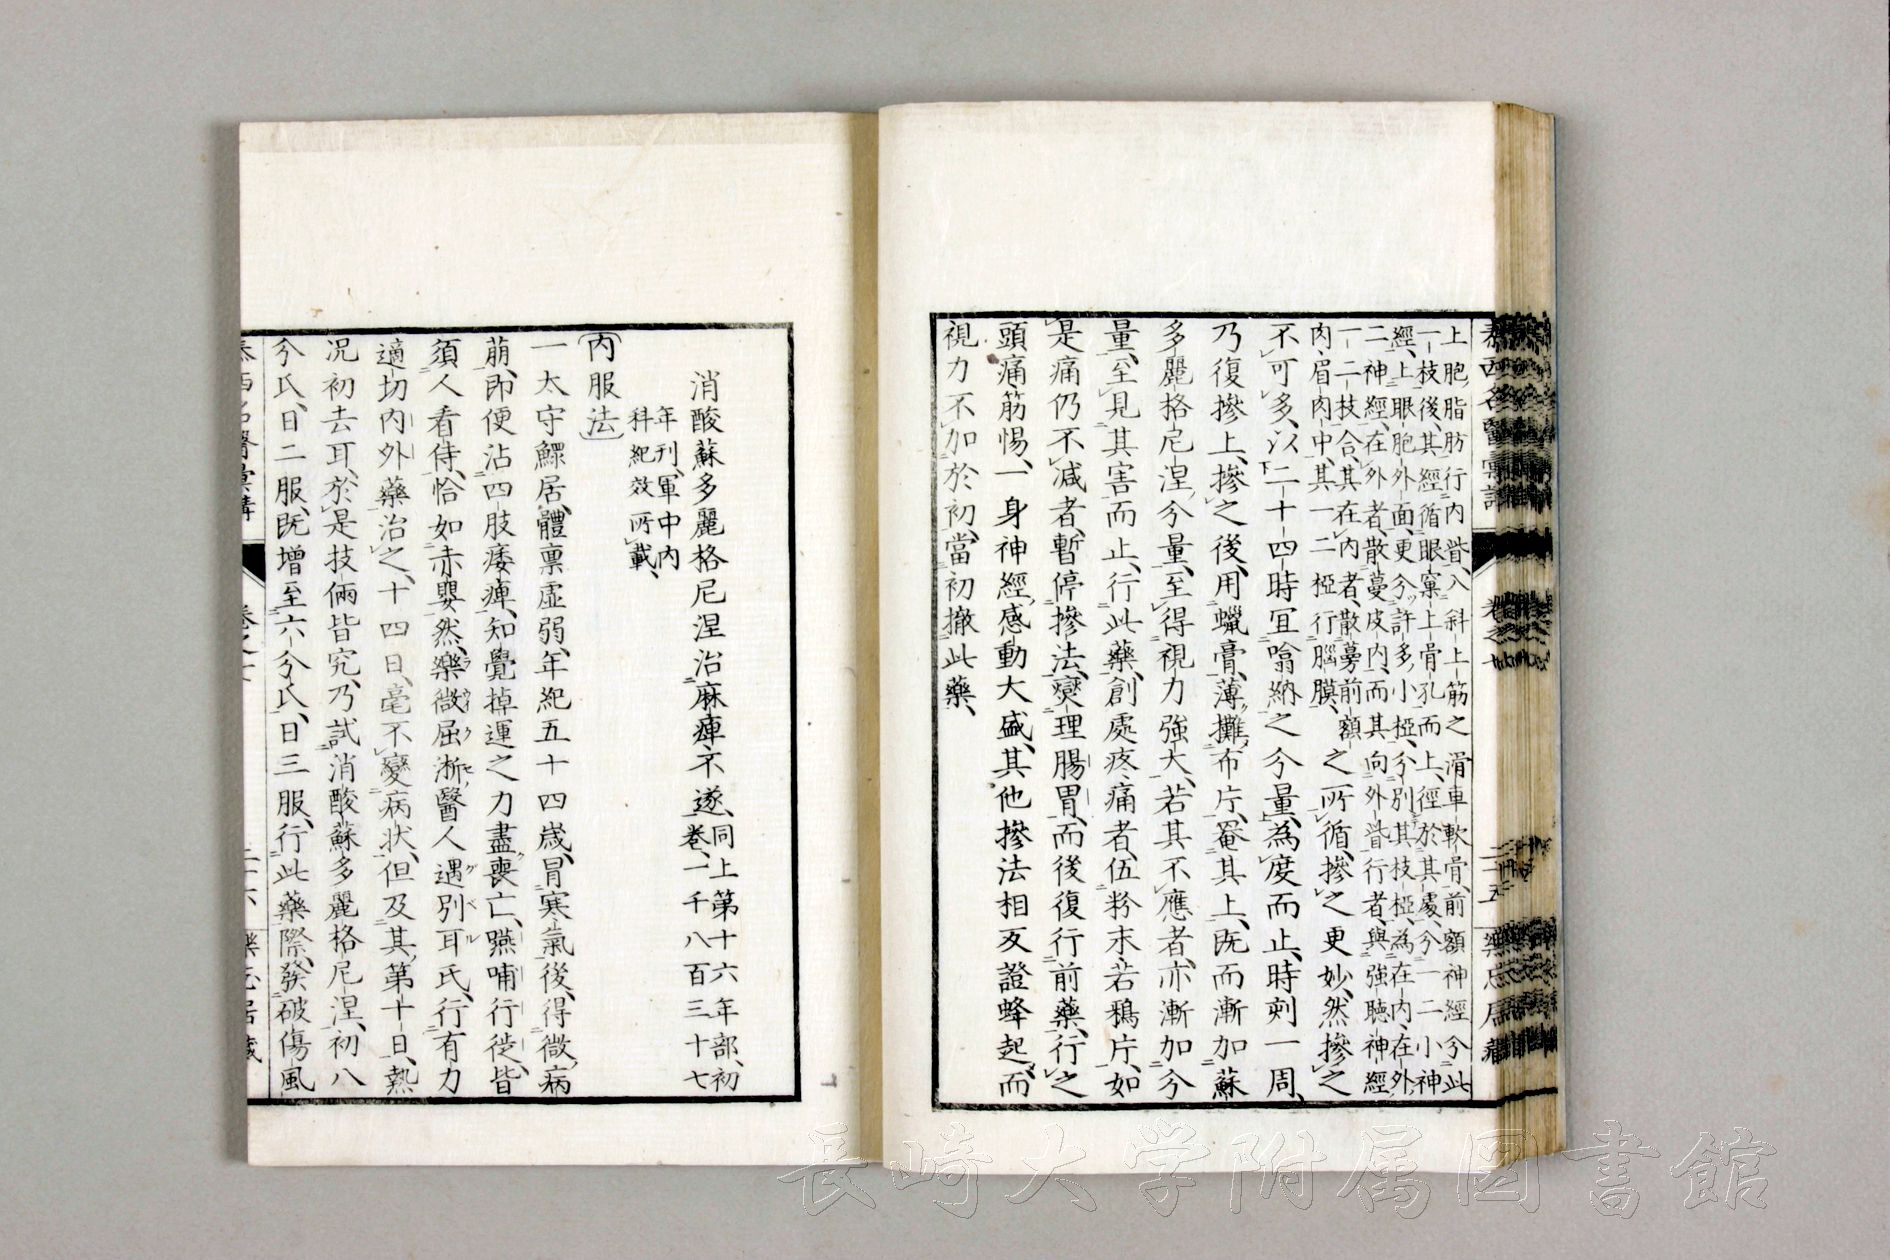 上胞脂肪行内眥、入斜上筋之滑車軟骨、前額神經、分此
一枝後、其經循眼窠上骨孔而上、徑於其處、分一二小神
經、上眼胞外面、更分許多小椏、分別其枝椏、為在内、在外
二神經、在外者、散蔓皮内、而其向外眥行者、與強聴神經
一二枝合、其在内者、散蔓前額
肉眉肉中、其一二椏行腦膜、之所循、摻之更妙、然摻之
不可多、以二十四時宜噏納之分量、為度而止、時刻一周、
乃復摻上、摻之後、用蠟膏、薄攤布片、罨其上、既而漸加蘇
多麗格尼涅、分量、至得視力強大、若其不應者、亦漸加分
量、至見其害而止、行此藥、創處疼痛者、伍粉末、若鴉片、如
是痛仍不減者、暫停摻法、燮理腸胃、而後復行前藥、行之
頭痛、筋惕、一身神經、感動大盛、其他摻法相反證蜂起、而
視力不加於初、當初撤此藥、
泰西名醫彙講
卷之十
二十五
樂志居藏
消酸蘇多麗格尼涅治麻痺不遂、同上第十六年部、初
卷、一千八百三十七
年刊、軍中内
科紀效所載、
内服法
一太守鰥居、體禀虚弱、年紀五十四歳、冒寒氣後、得微病
萠、即便沾四肢痿痺、知覺掉運之力盡喪亡、嚥哺行徙、皆
須人看侍、恰如赤嬰然、藥微屈淅醫人遇別耳氏、行有力
適切内外藥治之、十四日、毫不變病状、但及其第十日、熱
况初去耳、於是技倆皆究、乃試消酸蘇多麗格尼涅、初八
分氏、日二服、既增至六分氏、日三服、行此藥際、發破傷風
泰西名醫彙講
二十六
樂志居藏
長崎大学附属図書館